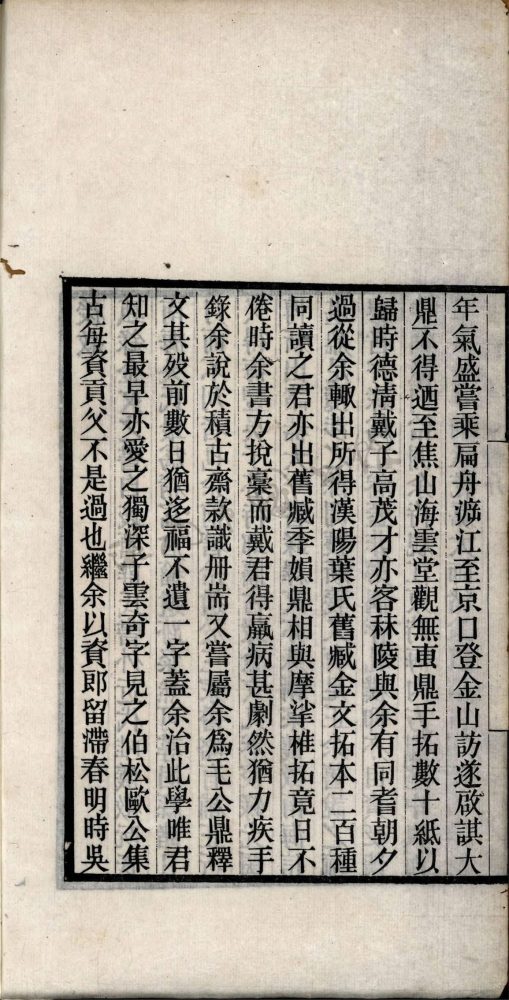 年氣盛嘗乘扁舟游江至京口登金山訪遂啟諆大
鼎不得迺至焦山海雲堂觀無叀鼎手拓數十紙以
歸時德清戴子高茂才亦客秣陵與余有同耆朝夕
過從余輙出所得漢陽葉氏舊臧金文拓本二百種
同讀之君亦出舊臧季娟鼎相與摩挲椎拓竟日不
倦時余書方挩稾而戴君得羸病甚劇然猶力疾手
錄余說於積古齋款識冊耑又嘗屬余爲毛公鼎釋
文其歿前數日猶迻福不遺一字蓋余治此學唯君
知之最早亦愛之獨深子雲奇字見之伯松歐公集
古每資貢父不是過也繼余以資郎留滯春明時吳